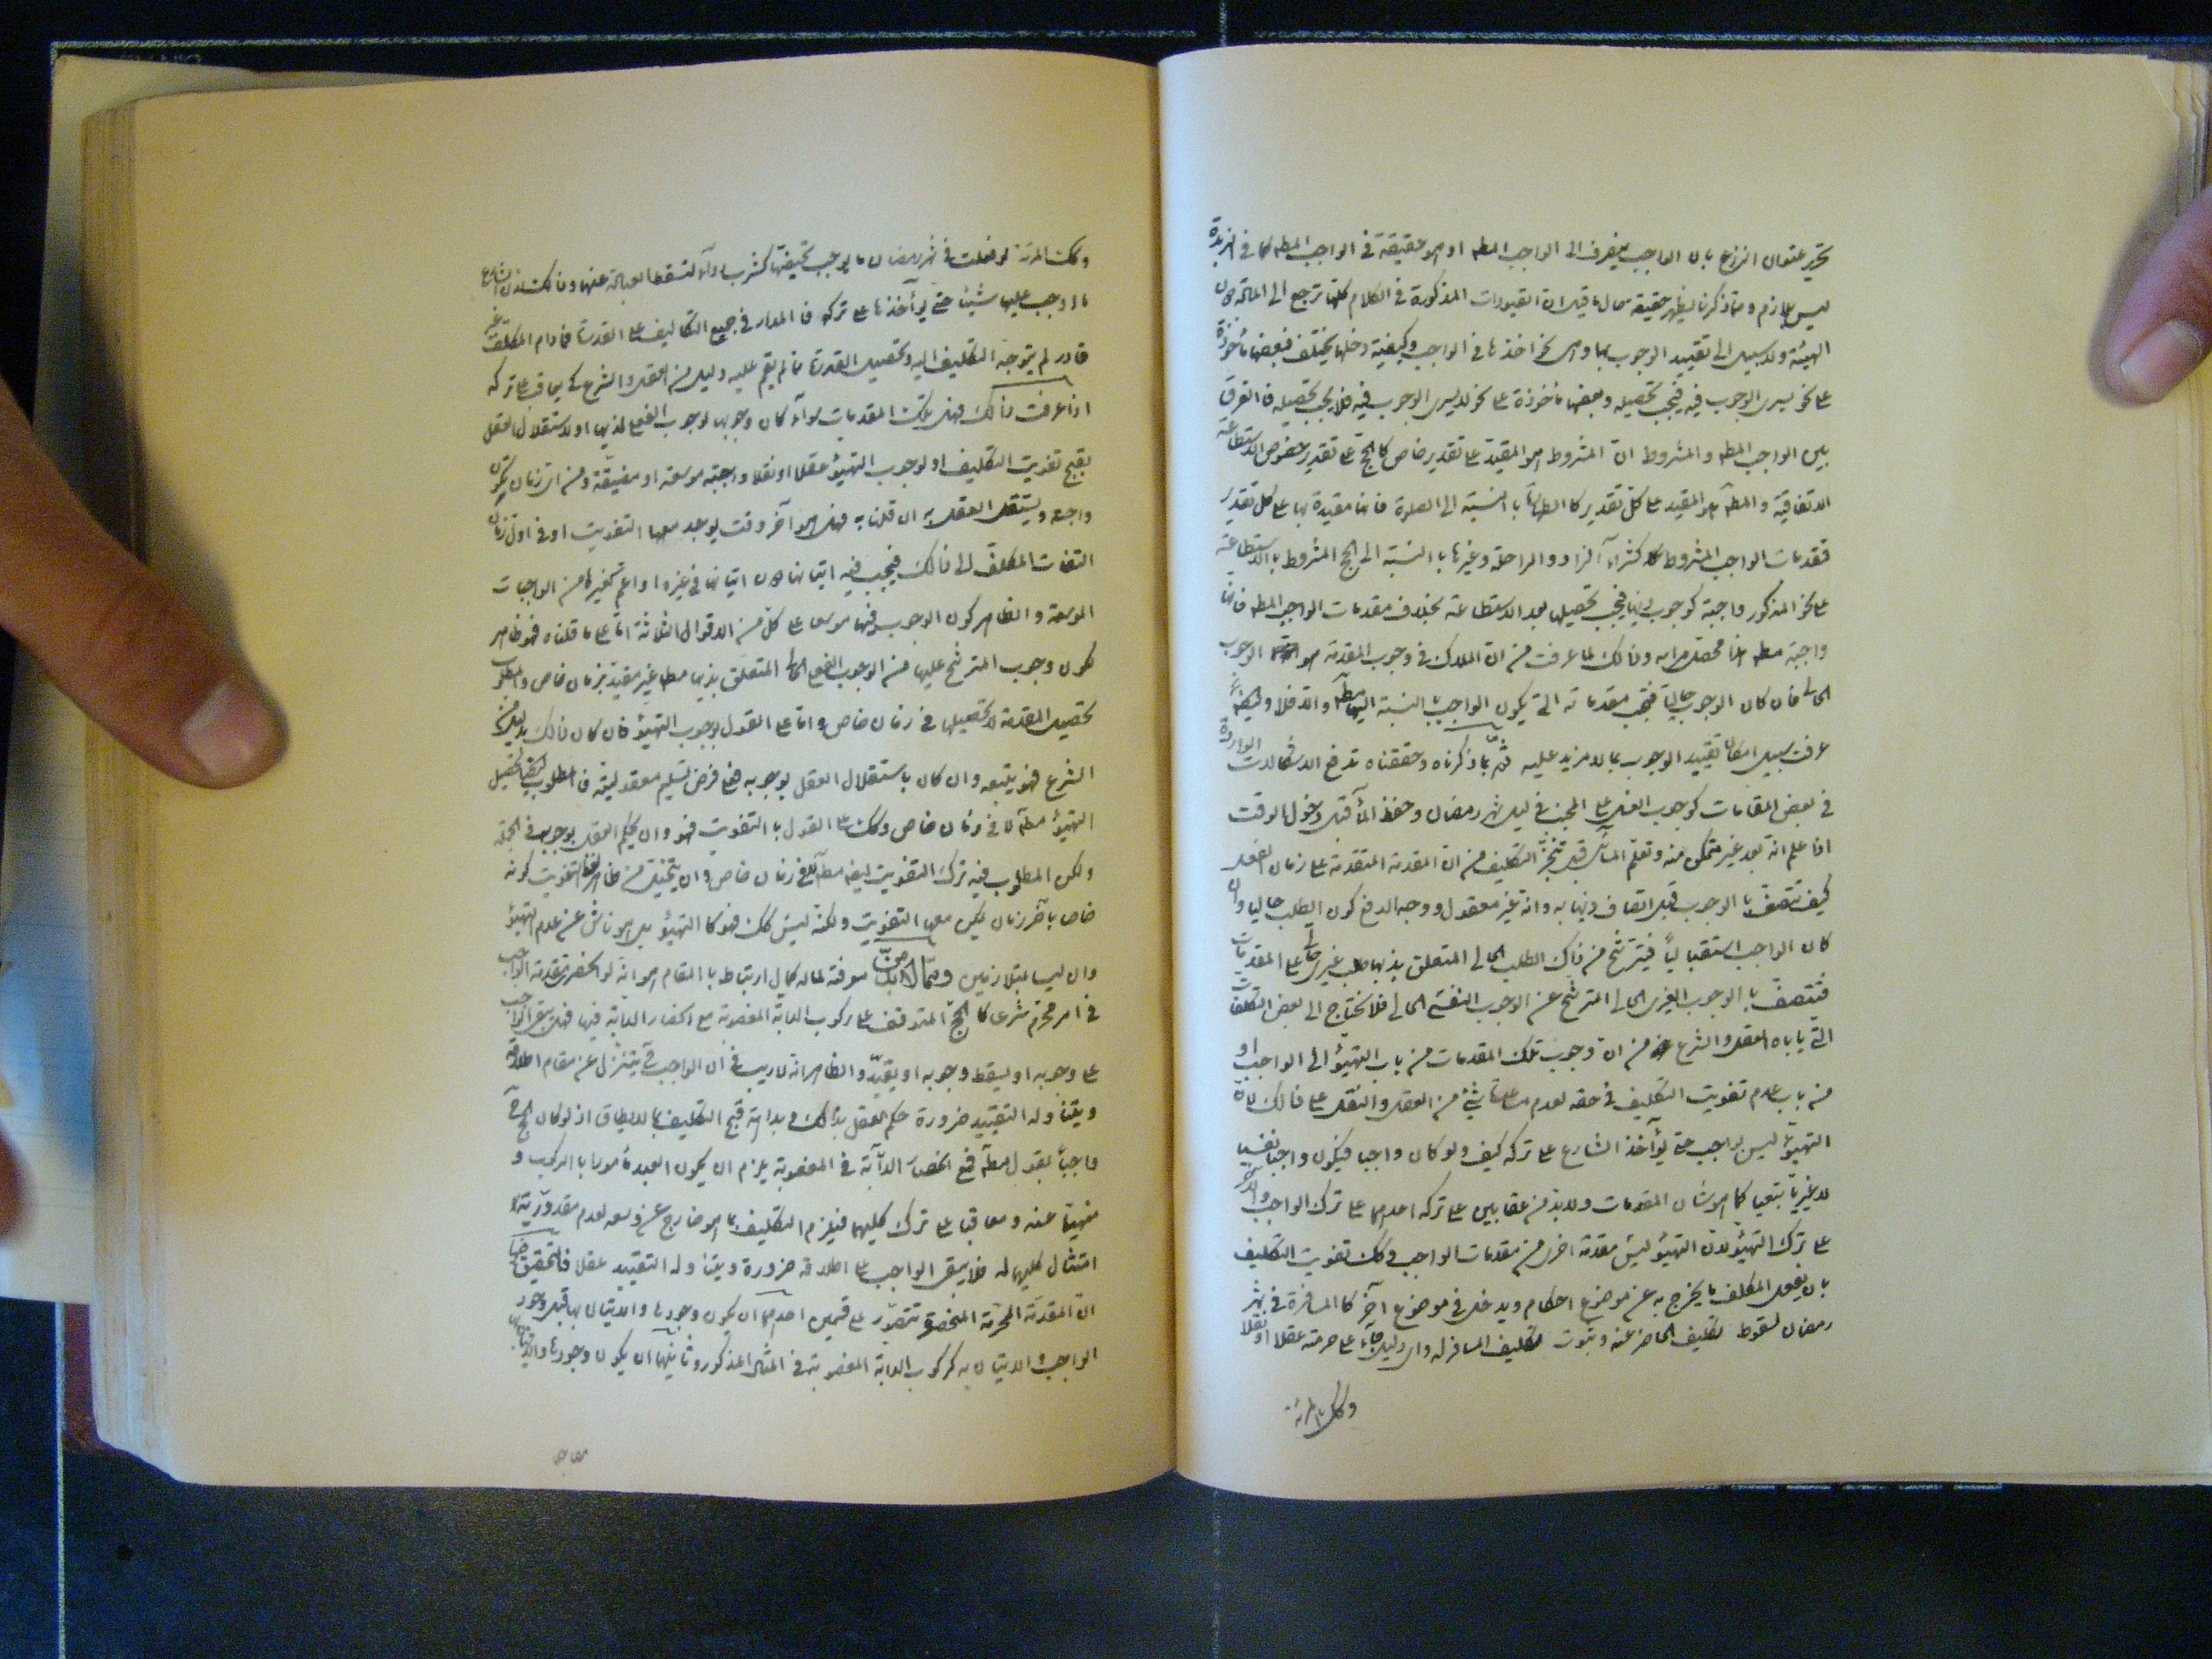 تحرير عنوان النزاع بان الواجب ينصرف الى الواجب المطه او هو حقيقة في الواجب المطه كما في الزبدة
ليس بلازم وممّا ذكرنا ليظهر حقيقة حال ما قيل ان القيودات المذكورة في الكلام كلها ترجع الى المادة دون
الهيئة ولا سبيل الى تقييد الوجوب بها واى نحو اخذها في الواجب وكيفية دخلها يختلف فبعضها مأخوذة
على نحو يسرى الوجوب فيه فيجب تحصيله وبعضها مأخوذة على نحو لا يسرى الوجوب فيه فلا يجب تحصيله فالفرق
بين الواجب المطه والمشروط انّ المشروط هو المقيد على تقدير خاص كالحج على تقدير حصول الاستطاعة
الاتفاقية والمطه هو المقيد على كل تقدير كالطهارة بالنسبة الى الصلوة فانها مقيدة بها على كل تقدير
فمقدمات الواجب المشروط كشراء الزاد والراحلة وغيرها بالنسبة الى الحج المشروط بالاستطاعة
على نحو المذكور واجبة كوجوب ذيها فيجب تحصيلها بعد الاستطاعة بخلاف مقدمات الواجب المطه فانها
واجبة مطه هذا محصل مرامه وذلك لما عرفت من ان الملاك في وجوب المقدمة هو الوجوب
الحالى فان كان الوجوب حاليا فيجب مقدماته التى يكون الواجب بالنسبة اليها مطه والا فلا وايضا
عرفت سبيل امكان تقييد الوجوب بما لا مزيد عليه ثمّ بما ذكرناه وحققناه تدفع الاشكالات الواردة
في بعض المقامات كوجوب الغسل على الجنب في ليل شهر رمضان وحفظ الماء قبل دخول الوقت
اذا علم انه بعد غير متمكن منه وتعلم المسائل قبل تنجّز التكليف من ان المقدمة المتقدمة على زمان الفعل
كيف تتصف بالوجوب قبل اتصاف ذيها به وانه غير معقول ووجه الدفع كون الطلب حاليا وان
كان الواجب استقباليا فيترشح من ذاك الطلب الحالى المتعلق بذيها طلب غيرى حالى على المقدمات
فتتصف بالوجوب الغيرى الحالى المترشح عن الوجوب النفسى الحالى فلا نحتاج الى بعض التكلفات
التى ياباه العقل والشرع من ان وجوب تلك المقدمات من باب التهيؤ الى الواجب او
من باب عدم تفويت التكليف في حقه لعدم مساعدة شئ من العقل والنقل على ذلك لان
التهيؤ ليس بواجب حتى يؤآخذ الشارع على تركه كيف ولو كان واجبا فيكون واجبا نفسيا
لا غيريا تبعيا كما هو شان المقدمات ولا بد من عقابين على تركه احدهما على ترك الواجب والاخر
على ترك التهيؤ لان التهيؤ ليس مقدمة اخرى من مقدمات الواجب وكك تفويت التكليف
بان يعمل المكلف ما يخرج به عن موضوع احكام ويدخل في موضوع آخر كالمسافرة في شهر
رمضان لسقوط تكليف الحاضر عنه وثبوت تكليف المسافر له واى دليل جاء على حرمته عقلا او نقلا
وكك المرئة
وكك المرئة لو فعلت في شهر رمضان ما يوجب تحيضها كشرب دوآء لتسقط العبادة عنها وذلك لان الشارع
ما اوجب عليها شيئا حتى يؤآخذها على تركه فالمدار في جميع التكاليف على القدرة فما دام المكلف غير
قادر لم يتوجه التكليف اليه وتحصيل القدرة ما لم يقم عليه دليل من العقل والشرع كى يعاقب على تركه
اذا عرفت ذلك فهل تلك المقدمات سوآء كان وجوبها لوجوب الفعلى لذيها او لاستقلال العقل
بقبح تفويت التكليف او لوجوب التهيؤ عقلا او نقلا واجبة موسعة او مضيّقة ومن اى زمان تكون
واجبة ويستقل العقل به ان قلنا به فهل هو آخر وقت يوجد معها التفويت او في اول زمان
التفات المكلف الى ذلك فيجب فيه اتيانها دون اتيانها في غيره او اعم كغيرها من الواجبات
الموسعة والظاهر كون الوجوب فيها موسعا على كل من الاقوال الثلاثة اما على ما قلناه فهو ظاهر
لكون وجوب المترشح عليها من الوجوب الفعلى الحالى المتعلق بذيها مطه غير مقيد بزمان خاص والمطلوب
تحصيل المقدمة لا تحصيلها في زمان خاص واما على القول بوجوب التهيؤ فان كان ذلك بدليل من
الشرع فهو يتبعه وان كان باستقلال العقل بوجوبه فعلى فرض تسليم معقوليته فالمطلوب ايضا تحصيل
التهيؤ مطه لا في زمان خاص وكك على القول بالتفويت فهو وان يحكم العقل بوجوبه في الجملة
ولكن المطلوب فيه ترك التفويت ايضا مطه لا في زمان خاص وان يتخيل من ظاهر لفظ التفويت كونه
خاصا بآخر زمان يمكن معها التفويت ولكنه ليس كك فهو كالتهيؤ بل هو ناش عن عدم التهيؤ
وان ليسا بمتلازمين وممّا لا بدّ من معرفته لماله كمال ارتباط بالمقام هو انه لو انحصرت مقدمة الواجب
في امر محرّم شرعا كالحج المتوقف على ركوب الدابة المغصوبة مع انحصار الدابة فيها فهل يبقى الواجب
على وجوبه او يسقط وجوبه او يقيّد والظاهر انه لا ريب في ان الواجب ح يتنزل عن مقام اطلاقه
ويتناوله التقييد ضرورة حكم العقل بذلك وبداهة قبح التكليف بما لا يطاق اذ لو كان الحج ح
واجبا بقول مطه فمع انحصار الدابة في المغصوبة يلزم ان يكون العبد مأمورا بالركوب و
منهيا عنه ومعاقبا على ترك كليهما فيلزم التكليف بما هو خارج عن وسعه لعدم مقدورية
امتثال كليهما له فلا يبقى الواجب على اطلاقه ضرورة ويتناوله التقييد عقلا فالتحقيق
ان المقدمة المحرّمة المنحصرة تتصور على قسمين احدهما ان يكون وجودها والاتيان بها قبل وجود
الواجب والاتيان به كركوب الدابة المغصوبة في المثال المذكور وثانيهما ان يكون وجودها والاتيان